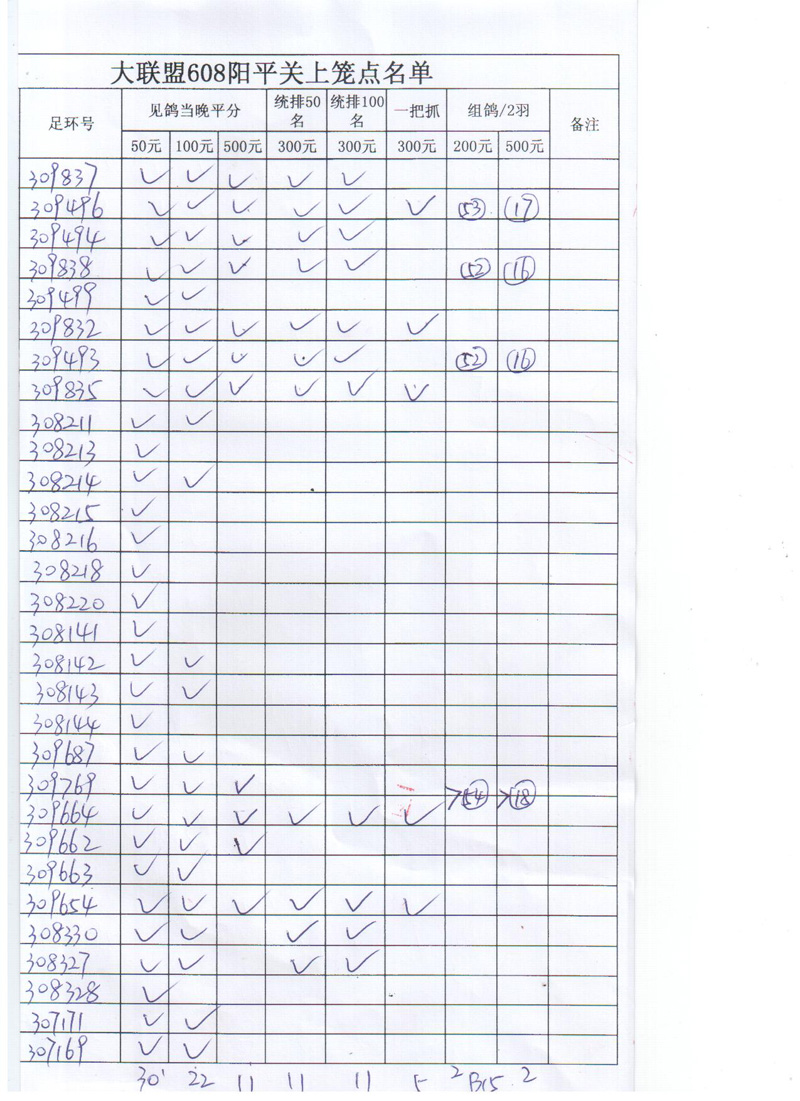 大联盟608阳平关上笼点名单
足环号 见鸽当晚平分 统排50名 统排100名 一把抓 组鸽/2羽 备注
50元 100元 500元 300元 300元 300元 200元 500元
309837 ✓ ✓ ✓ ✓ ✓
309496 ✓ ✓ ✓ ✓ ✓ ✓ 53 17
309494 ✓ ✓ ✓ ✓ ✓
309838 ✓ ✓ ✓ ✓ ✓ 52 16
309499 ✓ ✓
309832 ✓ ✓ ✓ ✓ ✓ ✓
309493 ✓ ✓ ✓ ✓ ✓ 52 16
309835 ✓ ✓ ✓ ✓ ✓ ✓
308211 ✓ ✓
308213 ✓
308214 ✓ ✓
308215 ✓
308216 ✓
308218 ✓
308220 ✓
308141 ✓
308142 ✓ ✓
308143 ✓ ✓
308144 ✓
309687 ✓ ✓
309769 ✓ ✓ ✓ >54 >18
309664 ✓ ✓ ✓ ✓ ✓ ✓
309662 ✓ ✓ ✓
309663 ✓ ✓
309654 ✓ ✓ ✓ ✓ ✓ ✓
308330 ✓ ✓ ✓ ✓
308327 ✓ ✓ ✓ ✓
308328 ✓
307171 ✓ ✓
307169 ✓ ✓
30 22 11 11 11 5 2 B15 2